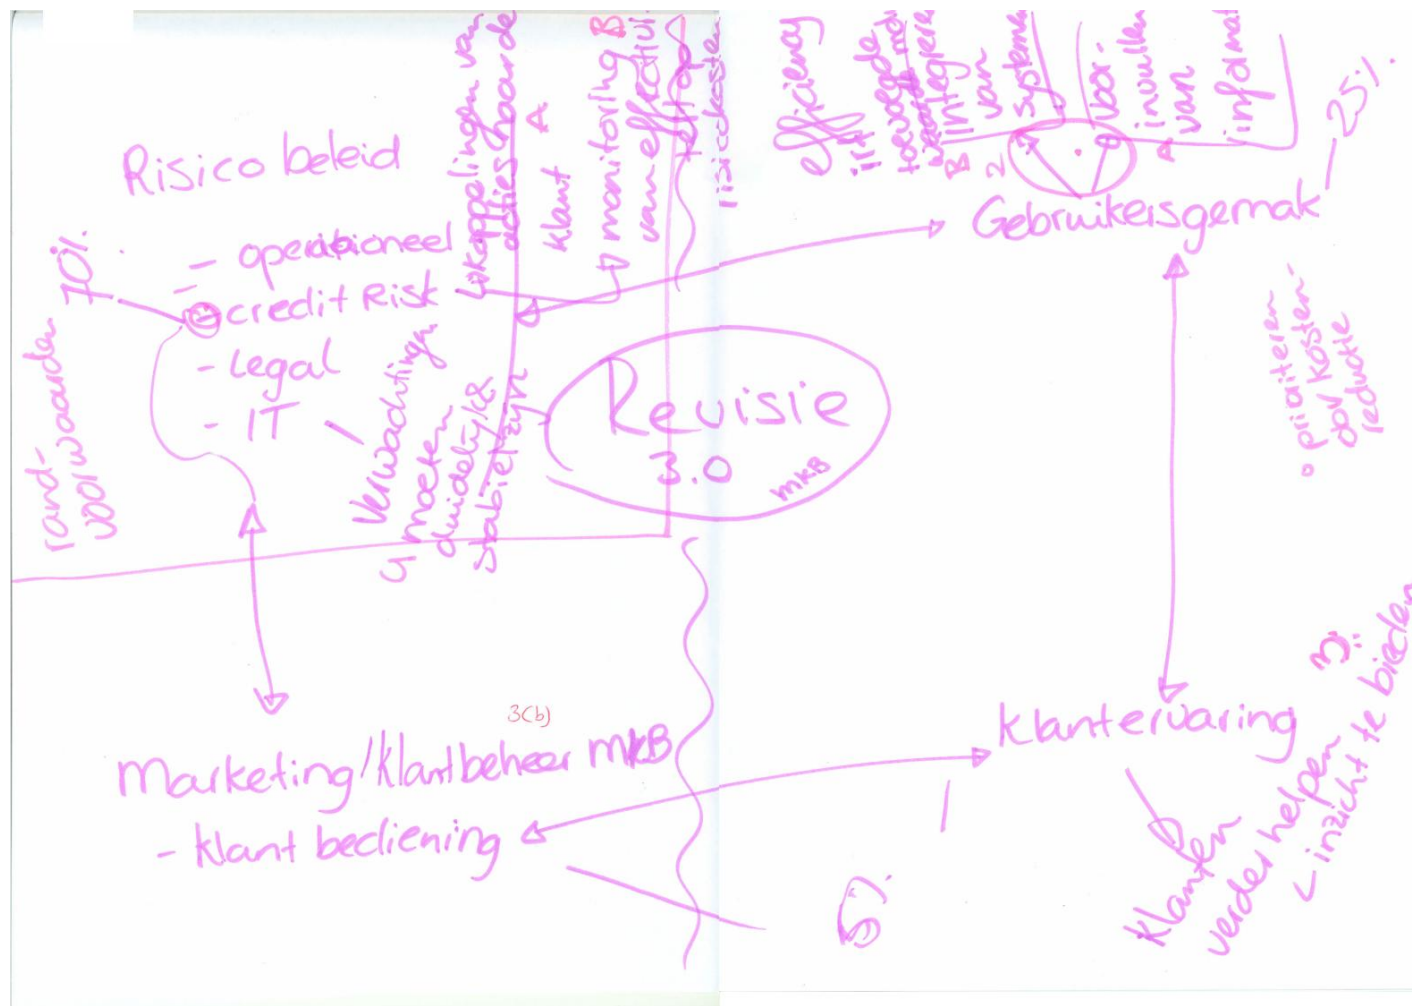 Risico beleid
- operationeel
- credit Risk
- Legal
- IT
70%
rand-
voorwaarden
Verwachtingen
moeten
duidelijk &
stabiel zijn
4
koppelingen van
acties
A
klant
B
monitoring
van
risicokosten
Revisie
3.0
MKB
efficiency
toevoegde
B
integreren
van
systemen
2
voor-
invullen
van
informat
A
Gebruikersgemak
25%
• prioriteren
dov kosten-
reductie
3(b)
Marketing/klantbeheer MKB
- klant bediening
5%
klantervaring
Klanten
verder helpen
< inzicht te bieden
3